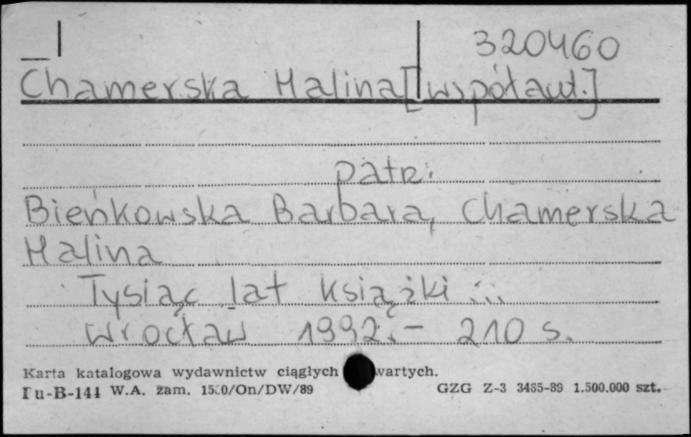 320460
Chamerska Halina [współaut.]
patrz:
Bieńkowska Barbara, Chamerska
Halina
Tysiąc lat książki ...
Wrocław 1992. - 210 s.
Karta katalogowa wydawnictw ciągłych
Pu-B-141 W.A. zam. /On/DW/89 GZG Z-3 3465-89 1.500.000 szt.